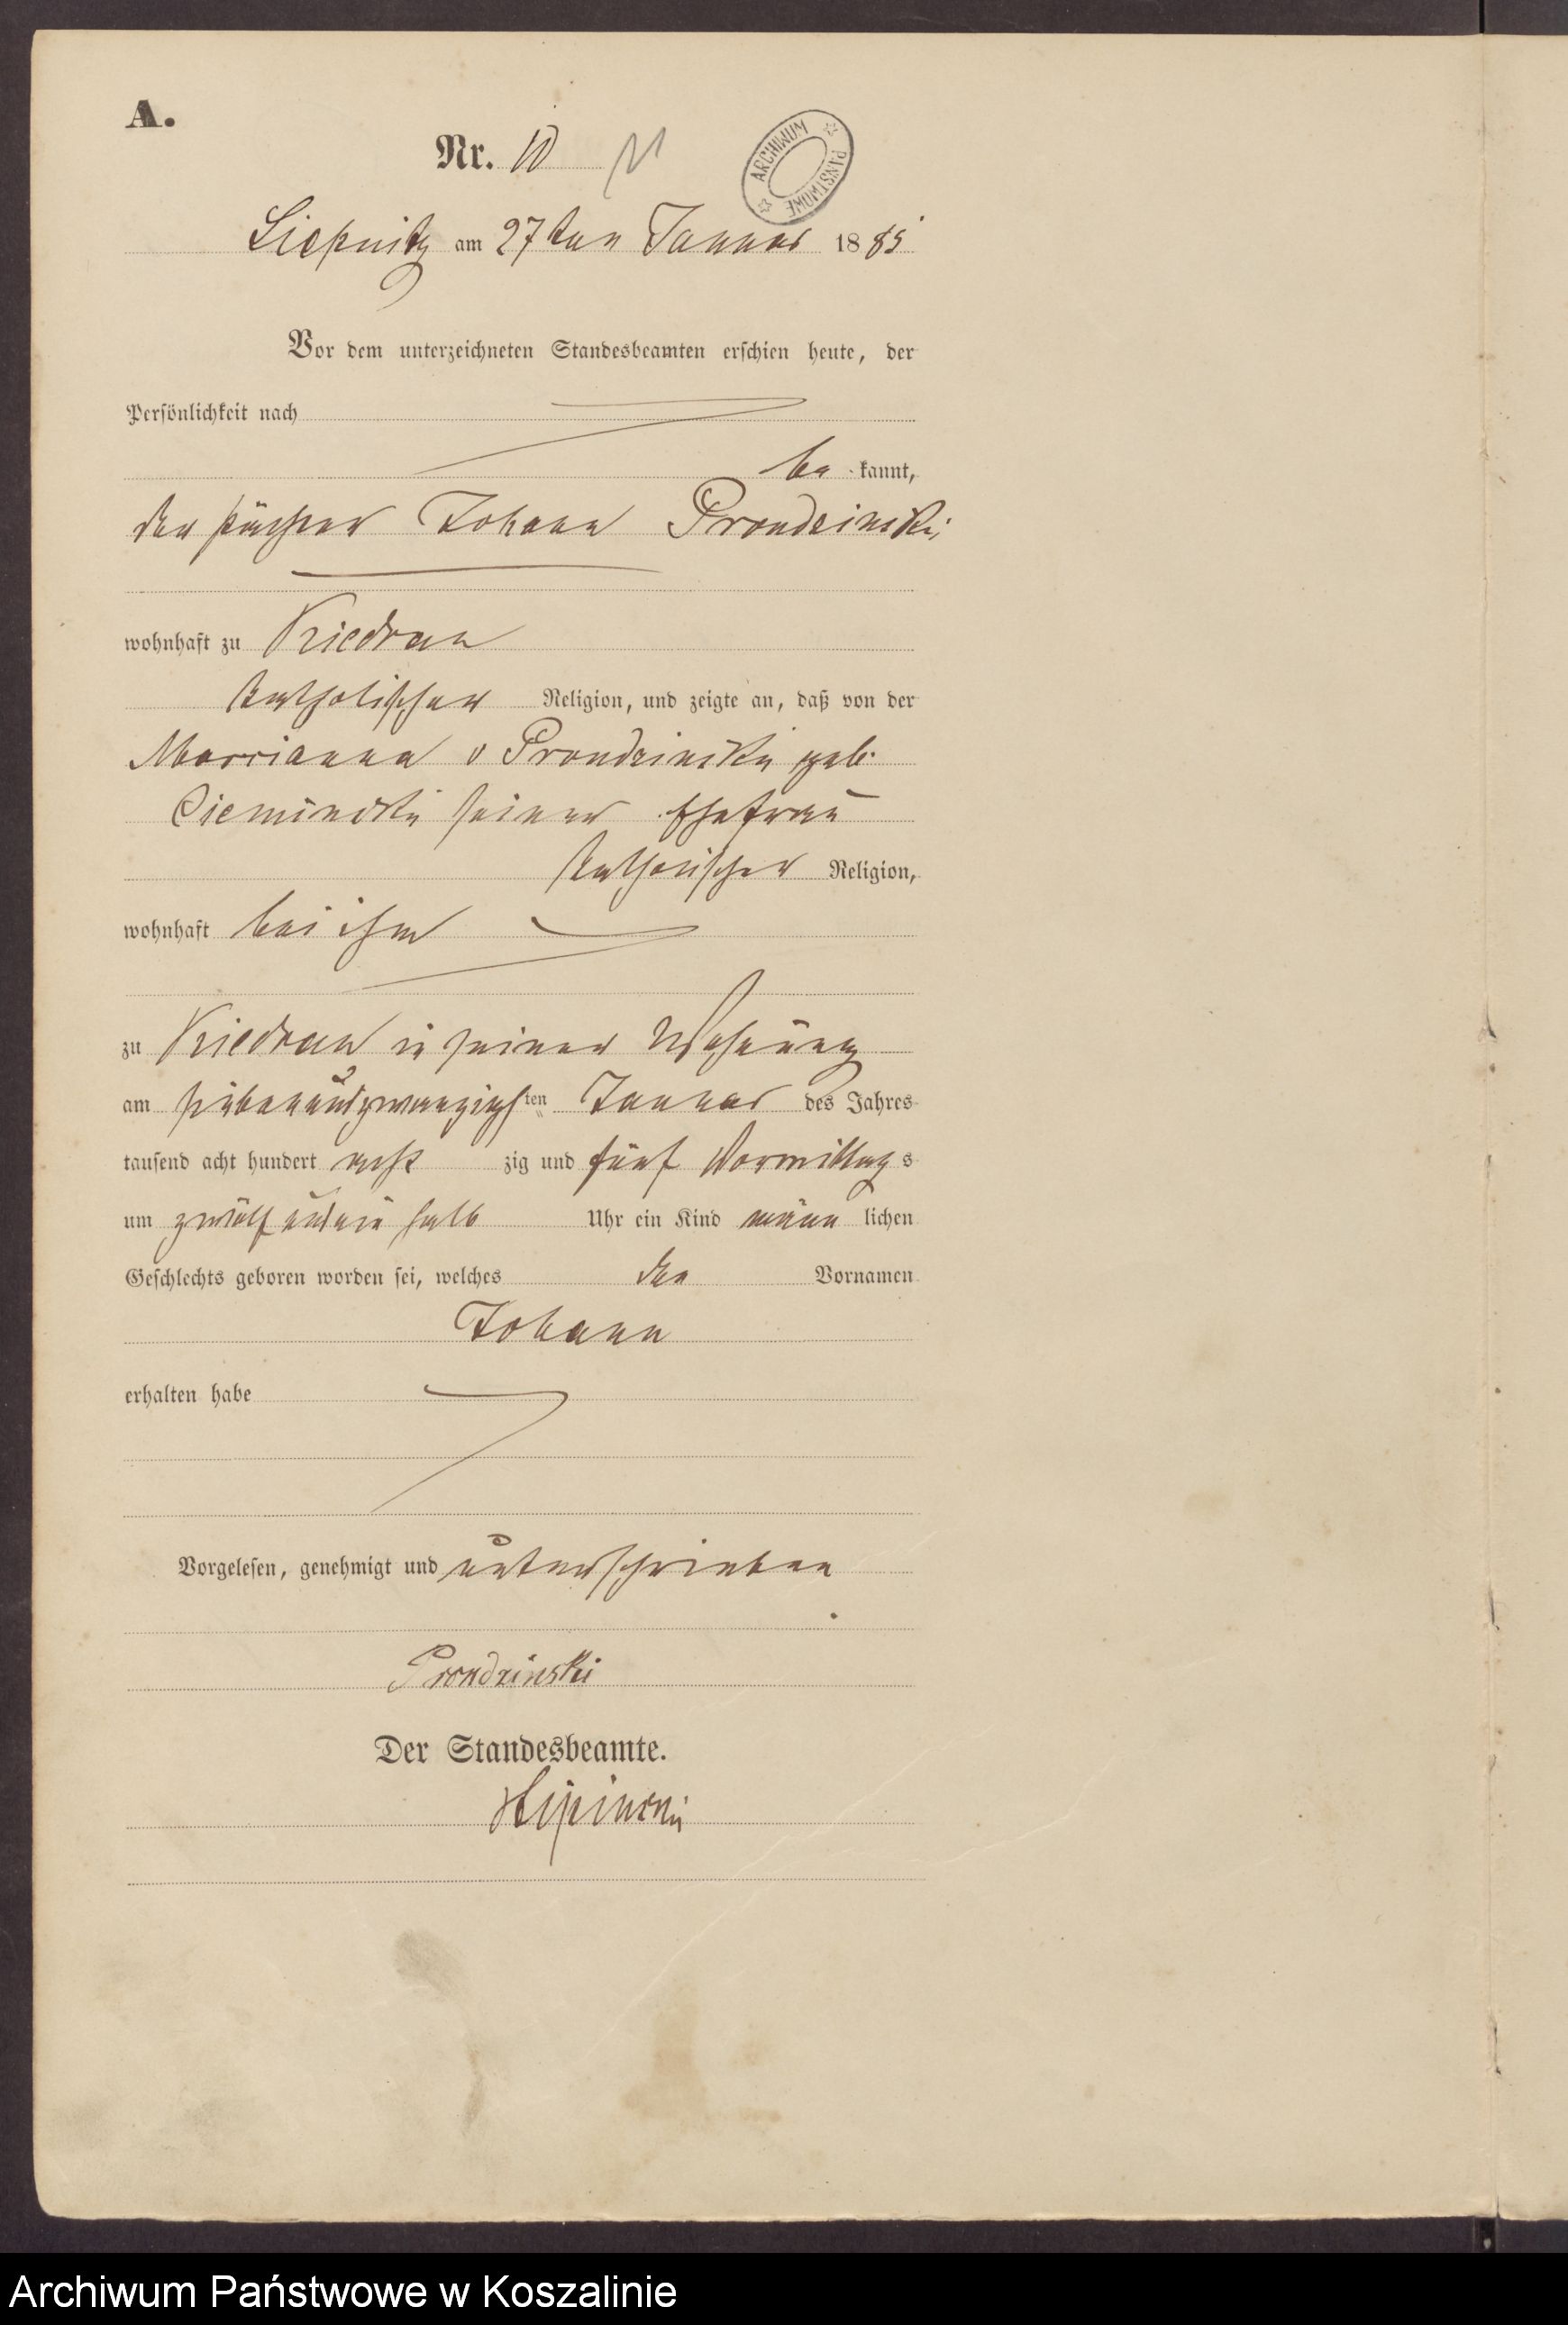 A.
Nr. 10
ARCHIWUM PAŃSTWOWE
Liepnitz am 27ten Januar 1885
Vor dem unterzeichneten Standesbeamten erschien heute, der
Persönlichkeit nach
be kannt,
der Pächter Johann Prondzinski,
wohnhaft zu Kiedrau
katholischer Religion, und zeigte an, daß von der
Marrianna v Prondzinski geb.
Cieminski seiner Ehefrau
katholischer Religion,
wohnhaft bei ihm
zu Kiedrau in seiner Wohnung
am siebenundzwanzigsten Januar des Jahres
tausend acht hundert acht zig und fünf Vormittags
um zwölf undein halb Uhr ein Kind männ lichen
Geschlechts geboren worden sei, welches den Vornamen
Johann
erhalten habe
Vorgelesen, genehmigt und unterschrieben
Prondzinski
Der Standesbeamte.
Archiwum Państwowe w Koszalinie